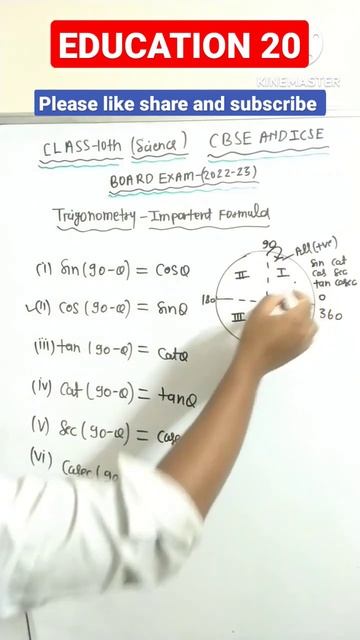 EDUCATION 20
KINEMASTER
Please like share and subscribe
CLASS-10th (Science) CBSE AND ICSE
BOARD EXAM-(2022-23)
Trigonometry - Importent Formula
(i) Sin(90-θ) = Cosθ
(ii) Cos (90-θ) = Sinθ
(iii) tan (90-θ) = Catθ
(iv) Cat (90-θ) = tanθ
(v) Sec (90-θ) = Cose
(vi) Cosec (90
90
All (+ve)
II I
Sin Cat
Cos Sec
tan Cosec
180 0
III 360